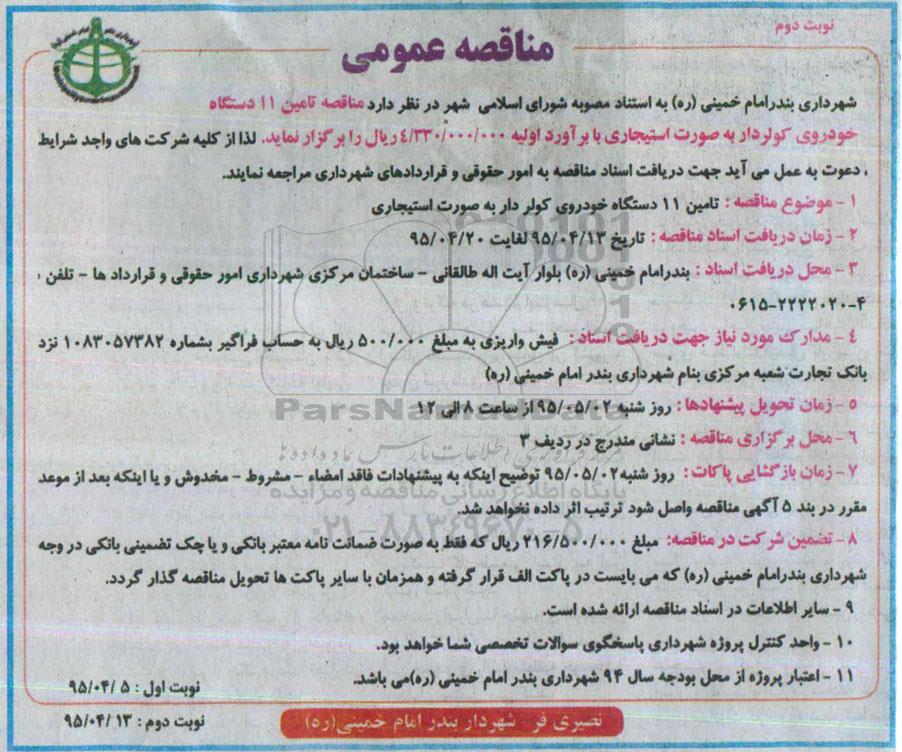 نوبت دوم
مناقصه عمومی
شهرداری بندرامام خمینی (ره) به استناد مصوبه شورای اسلامی شهر در نظر دارد مناقصه تامین ۱۱ دستگاه
خودروی کولردار به صورت استیجاری با برآورد اولیه ۴/۳۳۰/۰۰۰/۰۰۰ ریال را برگزار نماید. لذا از کلیه شرکت های واجد شرایط
، دعوت به عمل می آید جهت دریافت اسناد مناقصه به امور حقوقی و قراردادهای شهرداری مراجعه نمایند.
۱ - موضوع مناقصه : تامین ۱۱ دستگاه خودروی کولر دار به صورت استیجاری
۲ - زمان دریافت اسناد مناقصه : تاریخ ۹۵/۰۴/۱۳ لغایت ۹۵/۰۴/۲۰
۳ - محل دریافت اسناد : بندرامام خمینی (ره) بلوار آیت اله طالقانی - ساختمان مرکزی شهرداری امور حقوقی و قرارداد ها - تلفن :
۰۶۱۵-۲۲۲۲۰۲۰-۴
۴ - مدارک مورد نیاز جهت دریافت اسناد : فیش واریزی به مبلغ ۵۰۰/۰۰۰ ریال به حساب فراگیر بشماره ۱۰۸۳۰۵۷۳۸۲ نزد
بانک تجارت شعبه مرکزی بنام شهرداری بندر امام خمینی (ره)
۵ - زمان تحویل پیشنهادها : روز شنبه ۹۵/۰۵/۰۲ از ساعت ۸ الی ۱۲
۶ - محل برگزاری مناقصه : نشانی مندرج در ردیف ۳
۷ - زمان بازگشایی پاکات : روز شنبه ۹۵/۰۵/۰۲ توضیح اینکه به پیشنهادات فاقد امضاء - مشروط - مخدوش و یا اینکه بعد از موعد
مقرر در بند ۵ آگهی مناقصه واصل شود ترتیب اثر داده نخواهد شد.
۸ - تضمین شرکت در مناقصه: مبلغ ۲۱۶/۵۰۰/۰۰۰ ریال که فقط به صورت ضمانت نامه معتبر بانکی و یا چک تضمینی بانکی در وجه
شهرداری بندرامام خمینی (ره) که می بایست در پاکت الف قرار گرفته و همزمان با سایر پاکت ها تحویل مناقصه گذار گردد.
۹ - سایر اطلاعات در اسناد مناقصه ارائه شده است.
۱۰ - واحد کنترل پروژه شهرداری پاسخگوی سوالات تخصصی شما خواهد بود.
۱۱ - اعتبار پروژه از محل بودجه سال ۹۴ شهرداری بندر امام خمینی (ره)می باشد.
نوبت اول : ۹۵/۰۴/۵
نوبت دوم : ۹۵/۰۴/۱۳
نصیری فر - شهردار بندر امام خمینی(ره)
ParsNamadData
پایگاه اطلاع رسانی مناقصه و مزایده
۰۲۱-۸۸۳۴۹۶۷۰-۵